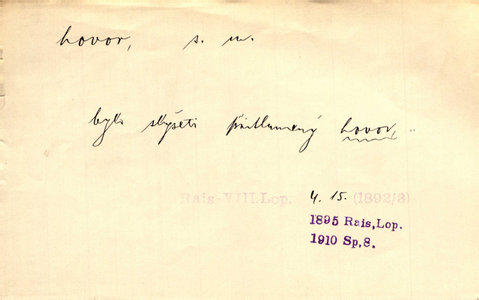 hovor, s. m.
bylo slyšeti přitlumený hovor, ..
Rais-VIII.Lop. 4. 15. (1892/3)
1895 Rais,Lop.
1910 Sp.8.